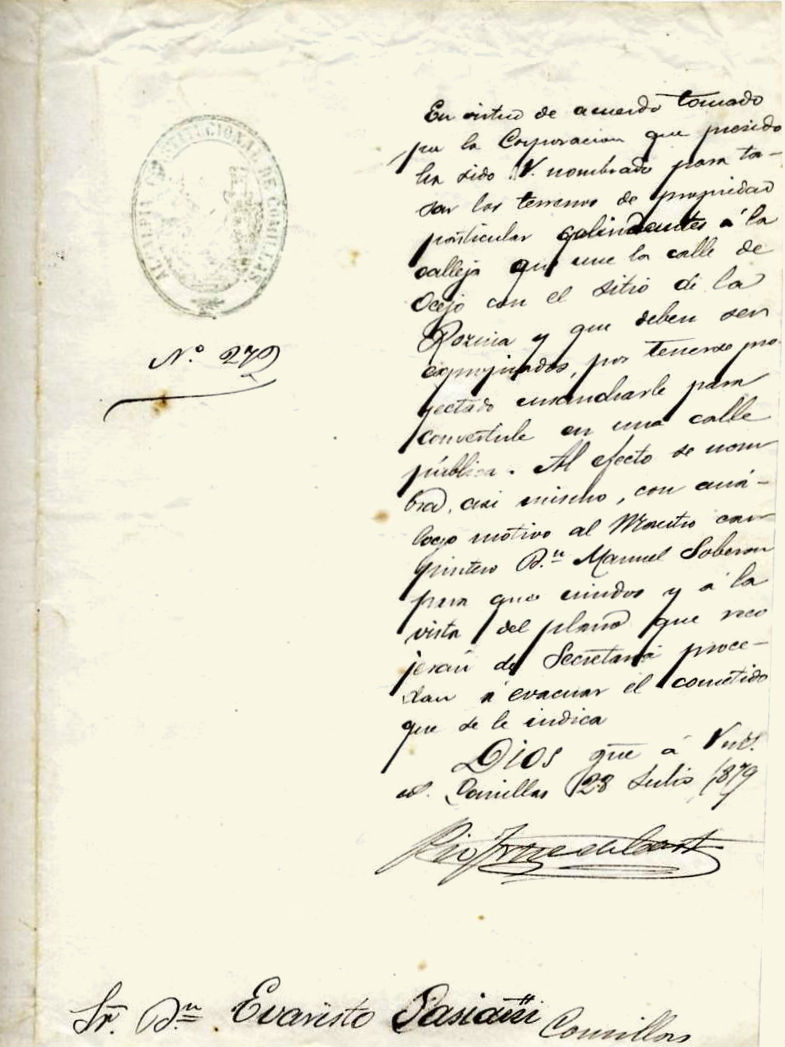 ALCALDIA CONSTITUCIONAL DE COMILLAS.
Nº 279
En virtud de acuerdo tomado
por la Corporacion que presido
ha sido V. nombrado para ta-
sar los terrenos de propiedad
particular colindantes á la
calleja que une la calle de
Ocejo con el sitio de la
y que deben ser
expropiados, por tenerse pro
yectado ensancharle para
convertirle en una calle
pública. Al efecto se nom
bra, asi mismo, con aná-
logo motivo al Maestro car
pintero D.n Manuel Soberon
para que unidos y á la
vista del plano que reco
jerán de Secretaria proce-
dan á evacuar el cometido
que se le indica
Dios gue á V. m.s
a.s Comillas 28 Julio 1879
Sr. D.n Evaristo Comillas